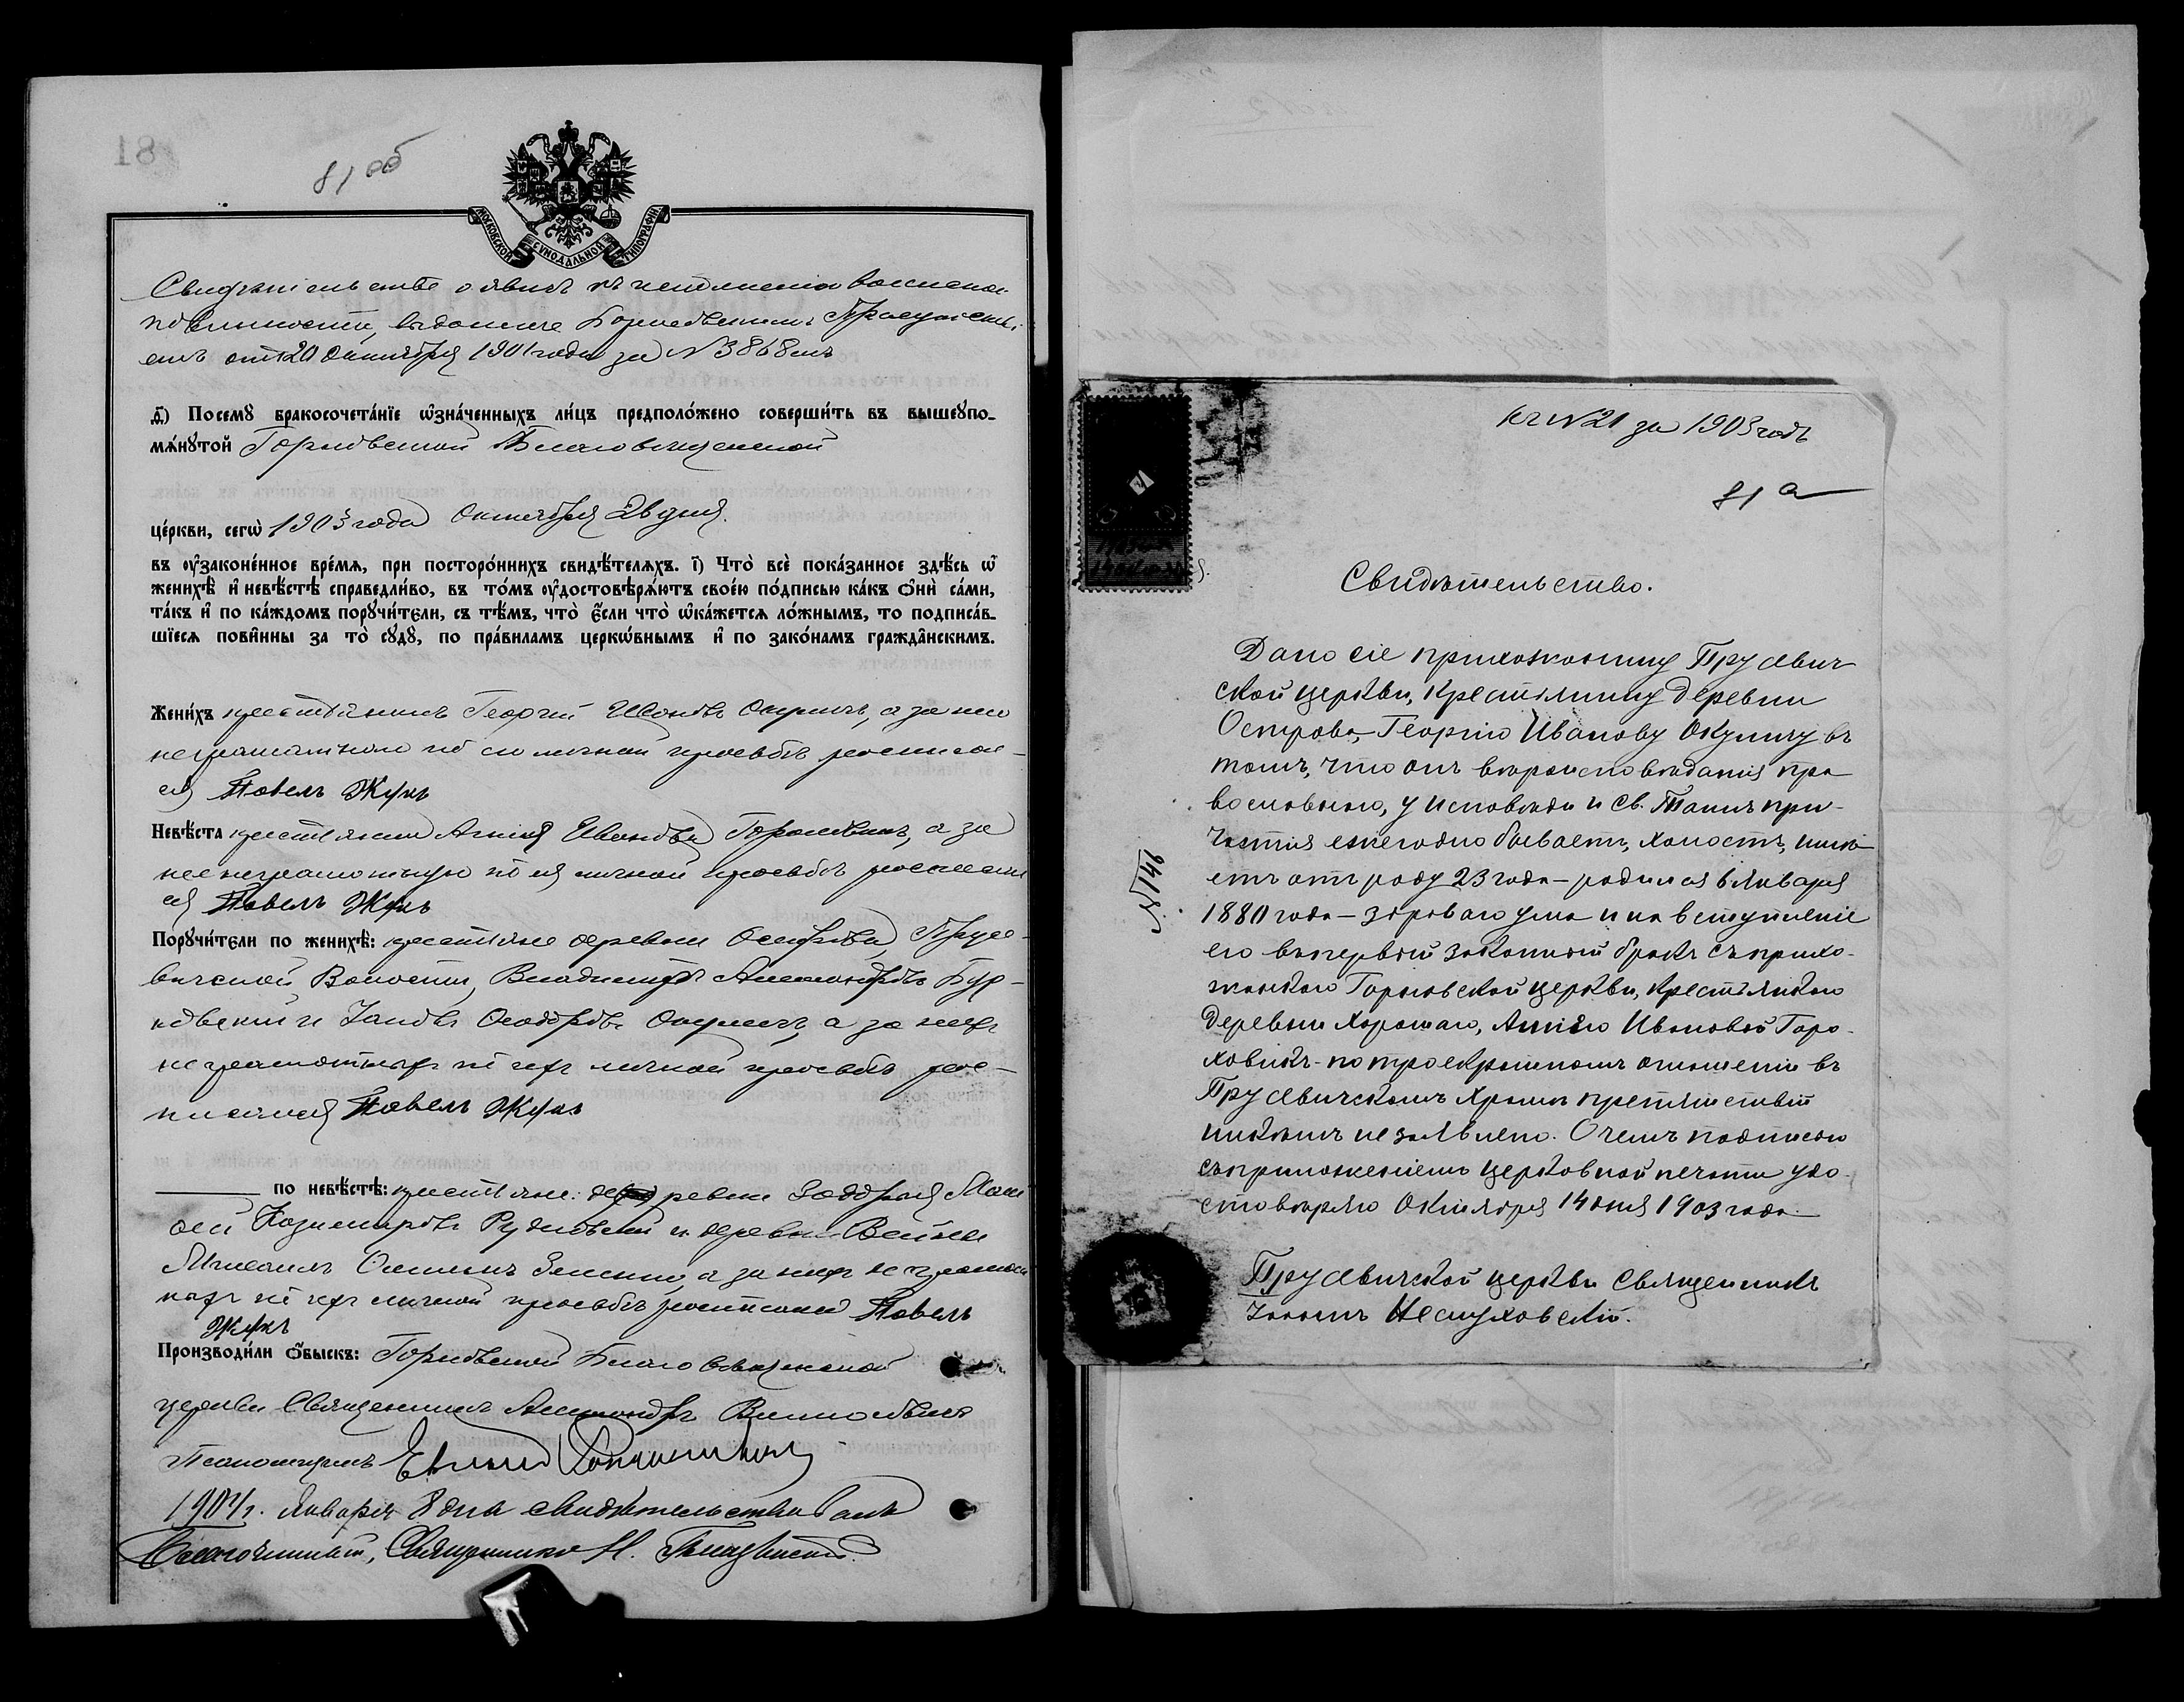 81
81 об
МОСКОВСКОЙ СѴНОДАЛЬНОЙ ТИПОГРАФІИ
Свидѣтельство о явкѣ къ исполненію воинской
повинности, выданное Присутстві
емъ отъ 20 Октября 1901 года за № 3868мъ
д҃) Посемꙋ бракосочета́нїе ѡ҆зна́ченныхъ ли́цъ предполо́жено соверши́ть въ вышеꙋпо-
мѧ́нꙋтой Горновской Благовѣщенской
це́ркви, сегѡ̀ 1903 года Октября 26 дня.
въ ᲂу҆законе́нное вре́мѧ, при посторо́ннихъ свидѣ́телѧхъ. і҃) Что̀ всѐ пока́занное здѣ́сь ѡ҆
женихѣ̀ и҆ невѣ́стѣ справедли́во, въ то́мъ ᲂу҆достовѣрѧ́ютъ свое́ю по́дписью ка́къ ѻ҆нѝ са́ми,
та́къ и҆ по ка́ждомъ порꙋчи́тели, съ тѣ́мъ, что̀ є҆́сли что̀ ѡ҆ка́жетсѧ ло́жнымъ, то подписа́в-
шїесѧ пови́нны за то̀ сꙋдꙋ̀, по пра́виламъ церкѡ́внымъ и҆ по зако́намъ гражда́нскимъ.
Жени́хъ крестьянинъ Георгій Ивановъ Окуличъ, а за него
неграмотнаго по его личной просьбѣ росписал-
ся Павелъ Жукъ
Невѣ́ста крестьянка Анна Иванова Гороховикъ, а за
нее неграмотную по ея личной просьбѣ росписал
ся Павелъ Жукъ
Порꙋчи́тєли по женихѣ̀: крестьяне деревни Острова, Прусе-
вичской Волости, Владиміръ Александровъ Бур-
ковскій и Іаковъ Ѳеодоровъ Окуличъ, а за нихъ
неграмотныхъ по ихъ личной просьбѣ рос-
писался Павелъ Жукъ
по невѣ́стѣ: крестьяне: деревни Моѵ
сей Казиміровъ Рудковскій и деревни
Михаилъ а за нихъ неграмот
ныхъ по ихъ личной просьбѣ росписался Павелъ
Жукъ
Производи́ли ѻ҆́быскъ: Горновской Благовѣщенской
церкви Священникъ Александръ
Псаломщикъ
1904 г. Января 8 дня свидѣтельствовалъ
Благочинный, Священникъ Н.
Къ № 21 за 1903 годъ
81 а
Свидѣтельство.
Дано сіе прихожанину Прусевич
ской церкви, крестьянину деревни
Острова, Георгію Иванову Окуличу въ
томъ, что онъ вѣроисповѣданія пра
вославнаго, у исповѣди и Св. Таинъ при-
частія ежегодно бываетъ, холостъ, имѣ
етъ отъ роду 23 года – родился 6 Января
1880 года – здраваго ума и на вступленіе
его въ первый законный бракъ съ прихо-
жанкою Горновской церкви, крестьянкою
деревни Хорошаго, Анною Ивановой Горо-
ховикъ – по троекратномъ оглашеніи въ
Прусевичскомъ Храмѣ препятствій
никакихъ не заявлено. О чемъ подписью
съ приложеніемъ церковной печати удо-
стовѣряю Октября 14 дня 1903 года.
Прусевичской церкви Священникъ
Іоаннъ Неслуховскій.